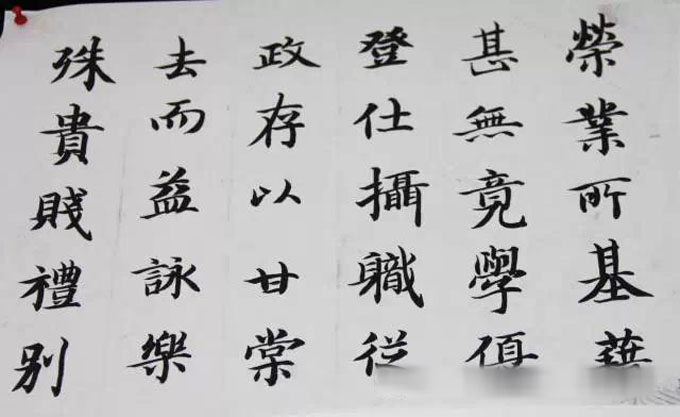 榮業所基
甚無竟學
登仕攝軄
政存以甘棠
去而益詠樂
殊貴賤禮别